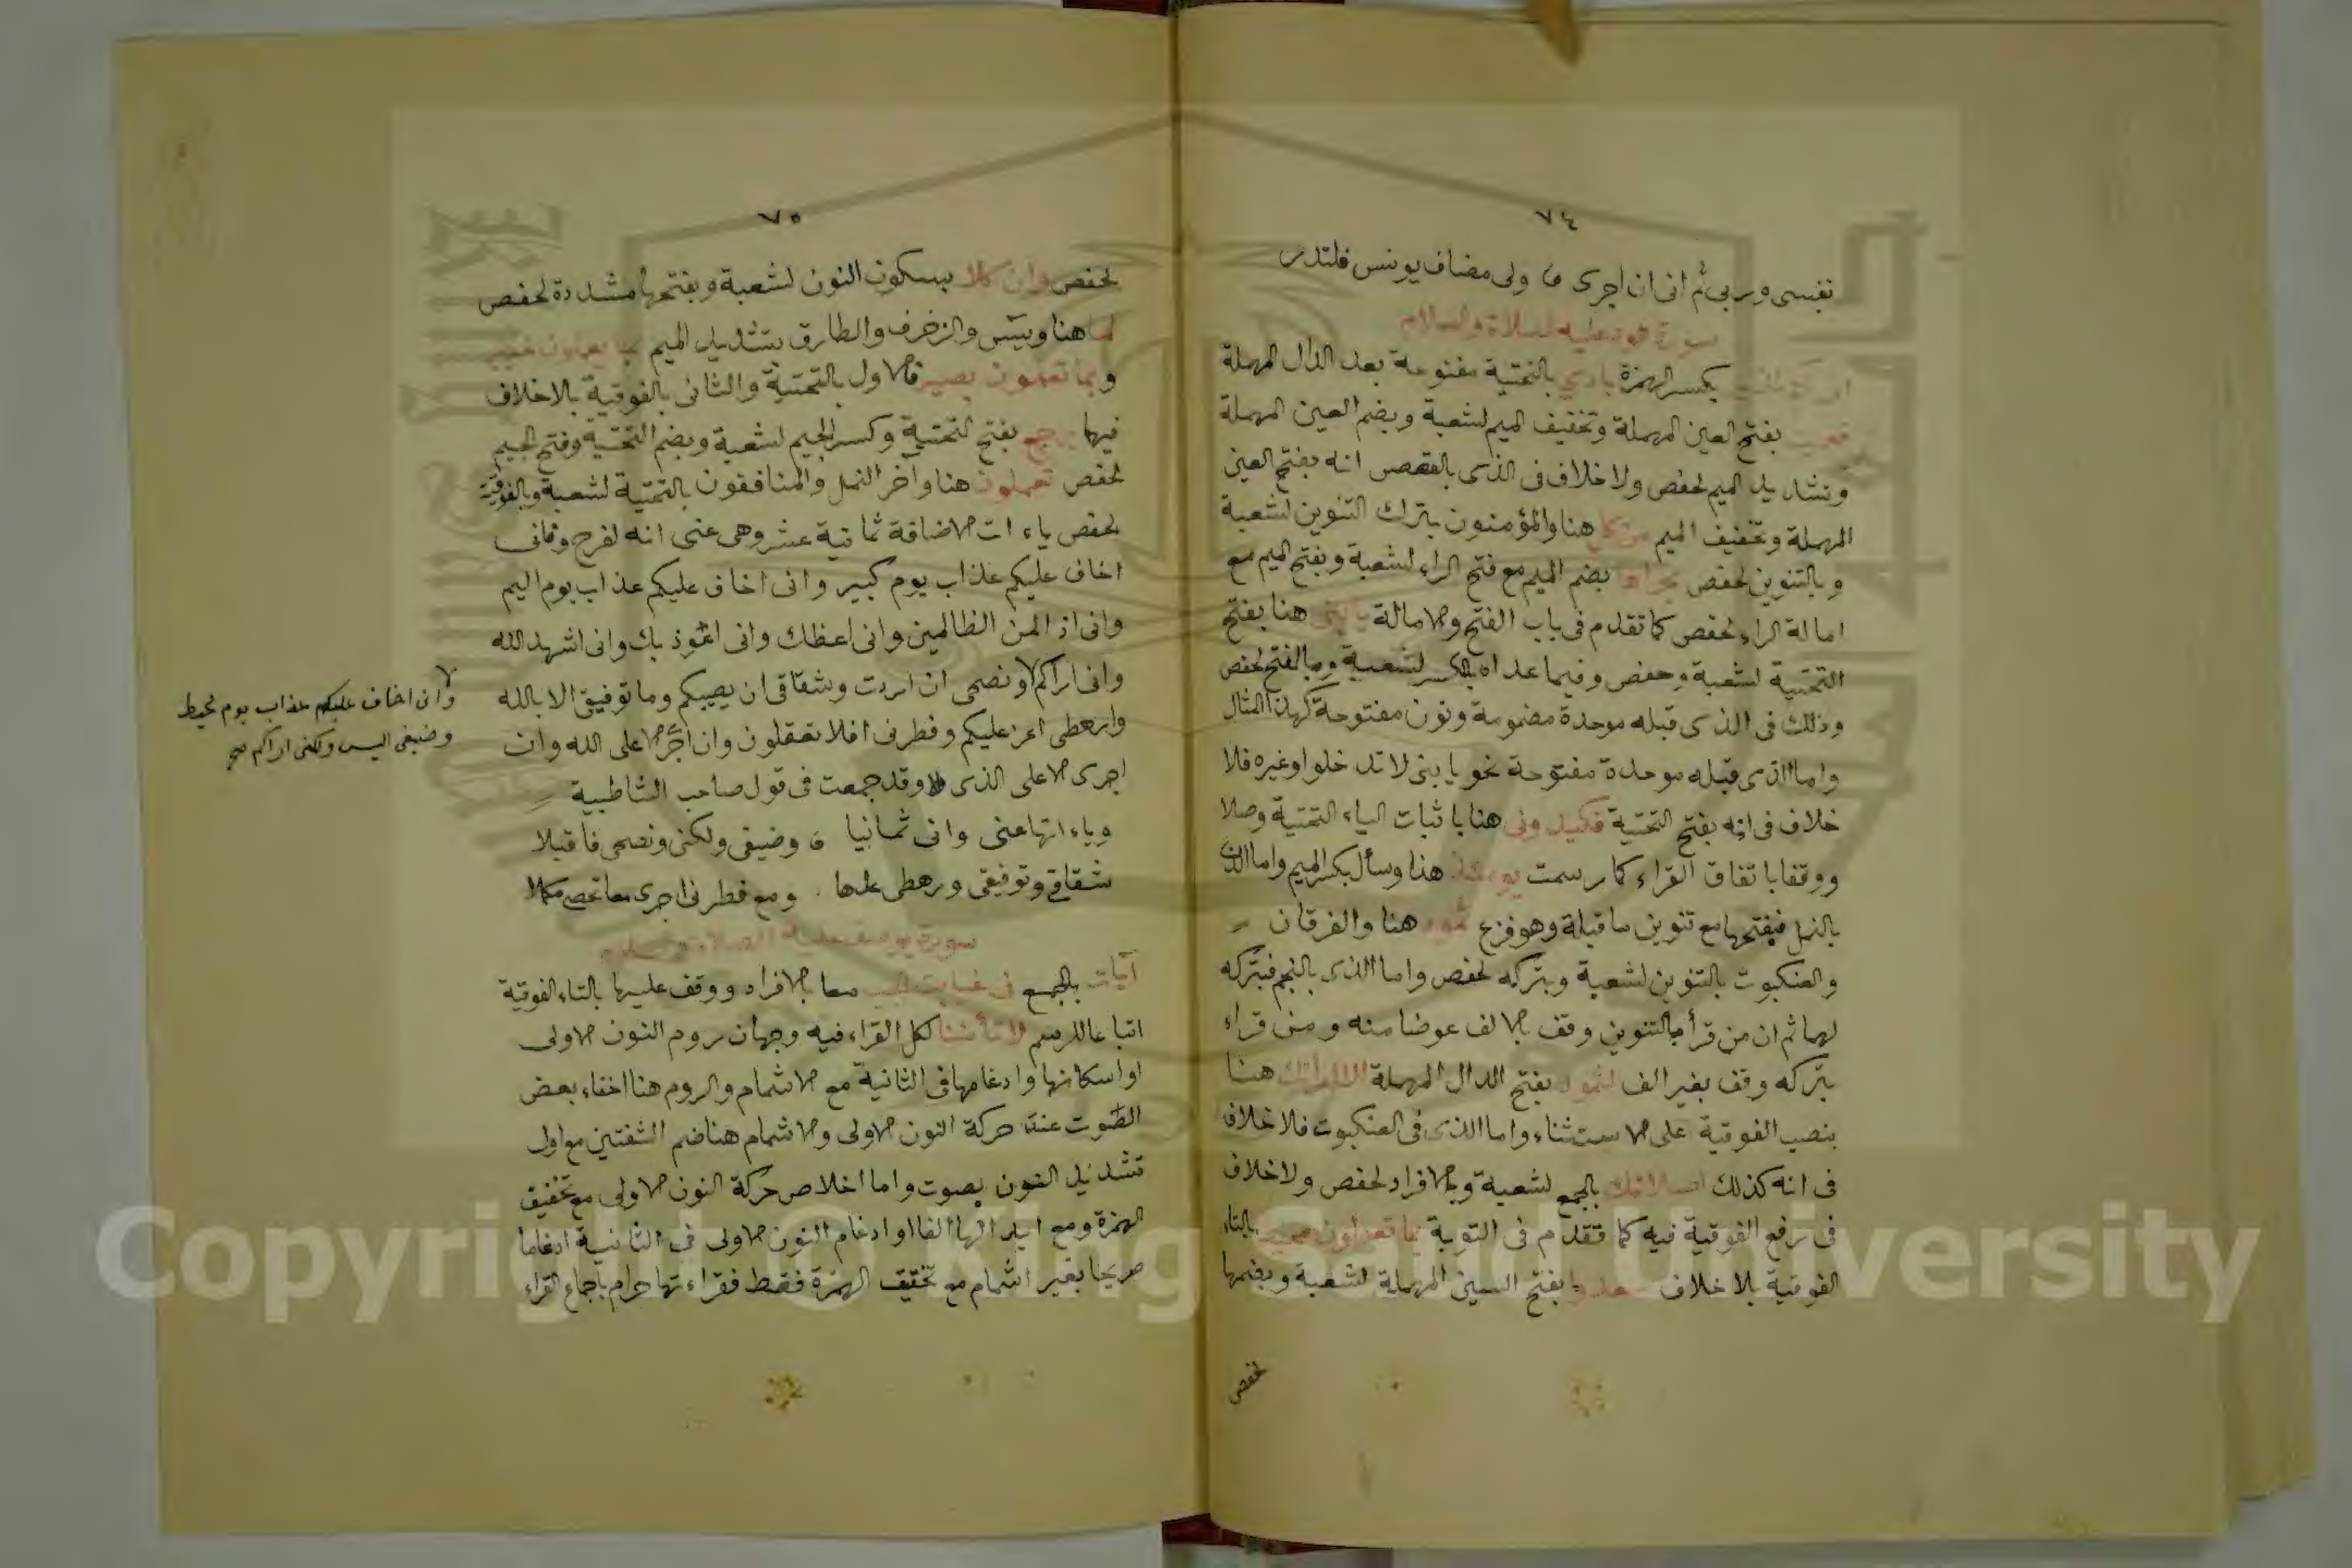 ٧٤
نفسى وربى ثم انى ان اجرى ولى مضاف يونس فلتدر
سورة هود عليه الصلاة والسلام
بكسر الهمزة بادي بالتحتية مفتوحة بعد الدال المهملة
فعميت بفتح العين المهملة وتخفيف الميم لشعبة وبضم العين المهملة
وتشديد الميم لحفص ولا خلاف فى الذى بالقصص انه بفتح العين
المهملة وتخفيف الميم من كل هنا والمؤمنون بترك التنوين لشعبة
وبالتنوين لحفص مجراها بضم الميم مع فتح الراء لشعبة وبفتح الميم مع
امالة الراء لحفص كما تقدم فى باب الفتح والامالة يابني هنا بفتح
التحتية لشعبة وحفص وفيما عداه بالكسر لشعبة وبالفتح لحفص
وذلك فى الذى قبله موحدة مضمومة ونون مفتوحة كهذا المثال
واما الذى قبله موحدة مفتوحة نحو يا بنى لا تدخلوا وغيره فلا
خلاف فى انه بفتح التحتية فكيدونى هنا با ثبات الياء التحتية وصلا
ووقفا باتفاق القراء كما رسمت يومئذ هنا وسأل بكسر الميم واما الذى
بالنمل فبفتحها مع تنوين ما قبله وهو فزع ثمود هنا والفرقان
والعنكبوت بالتنوين لشعبة وبتركه لحفص واما الذى بالنجم فبتركه
لهما ثم ان من قرأ بالتنوين وقف بالالف عوضا منه ومن قراء
بتركه وقف بغير الف لثمود بفتح الدال المهملة الا امراتك هنا
بنصب الفوقية على الاستثناء واما الذى فى العنكبوت فلا خلاف
فى انه كذلك اصلاتك بالجمع لشعبة وبالافراد لحفص ولا خلاف
فى رفع الفوقية فيه كما تقدم فى التوبة بما تعملون محيط بالتاء
الفوقية بلا خلاف سعدوا بفتح السين المهملة لشعبة وبضمها
لحفص
٧٥
لحفص وان كلا بسكون النون لشعبة وبفتحها مشددة لحفص
لما هنا ويس والزخرف والطارق بتشديد الميم بما يعملون خبير
وبما تعملون بصير فالاول بالتحتية والثانى بالفوقية بلا خلاف
فيهما يرجع بفتح التحتية وكسر الجيم لشعبة وبضم التحتية وفتح الجيم
لحفص تعملون هنا وآخر النمل والمنافقون بالتحتية لشعبة وبالفوقية
لحفص ياء ات الاضافة ثمانية عشر وهى عنى انه لفرح وفانى
اخاف عليكم عذاب يوم كبير وانى اخاف عليكم عذاب يوم اليم
وانى اذ المن الظالمين وانى اعظك وانى اعوذ بك وانى اشهد الله
وانى اراكم ونصحى ان اردت وشقاقى ان يصيبكم وما توفيقى الا بالله
وارهطى اعز عليكم وفطرنى افلا تعقلون وان اجرى الا على الله وان
اجرى الا على الذى وقد جمعت فى قول صاحب الشاطبية
وياءاتها عنى وانى ثمانيا وضيفى ولكنى ونصحى فاقبلا
شقاقى وتوفيقى ورهطى عدها ومع فطرنى اجرى معا تحصى مكملا
سورة يوسف عليه الصلاة والسلام
آيات بالجمع فى غيابت الجب معا بالافراد ووقف عليها بالتاء الفوقية
اتباعا للرسم لا تأمننا لكل القراء فيه وجهان روم النون الاولى
او اسكانها وادغامها فى الثانية مع الاشمام والروم هنا اخفاء بعض
الصوت عند حركة النون الاولى والاشمام هنا ضم الشفتين مع اول
تشديد النون بصوت واما اخلاص حركة النون الاولى مع تخفيف
الهمزة ومع ابدالها الفا او ادغام النون الاولى فى الثانية ادغاما
صريحا بغير اشمام مع تحقيق الهمزة فقط فقراءتها حرام باجماع القراء
وانى اخاف عليكم عذاب يوم محيط
وضيفى اليس ولكنى اراكم صح
Copyright © King Saud University